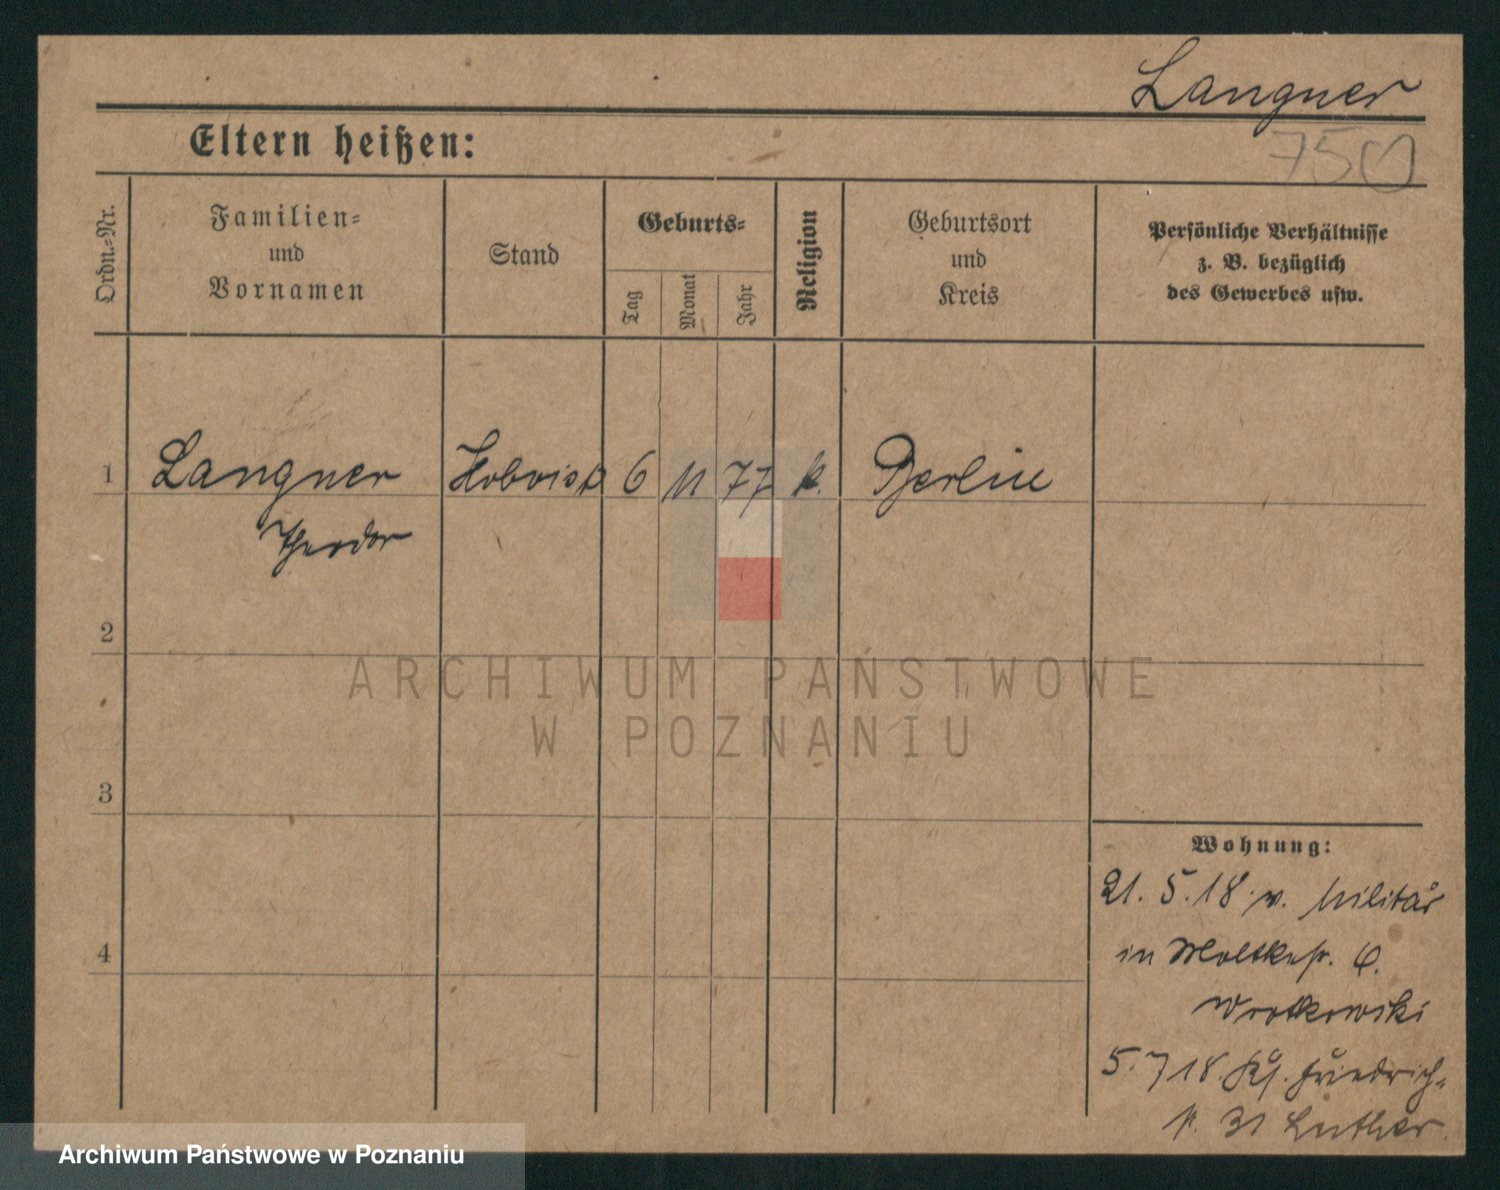 Langner
750
Eltern heißen:
Ordn.-Nr.
Familien-
und
Vornamen
Stand
Geburts-
Tag
Monat
Jahr
Religion
Geburtsort
und
Kreis
Persönliche Verhältnisse
z. B. bezüglich
des Gewerbes usw.
1 Langner Hoboist 6 11 77 k. Berlin
Theodor
2
ARCHIWUM PAŃSTWOWE
W POZNANIU
3
Wohnung:
21. 5. 18. v. Militär
in Moltkestr. 6.
Wrotkowski
4
5. 7 18. Friedrich-
31 Luther
Archiwum Państwowe w Poznaniu